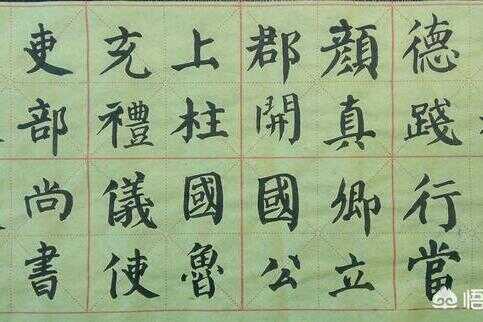 德踐行當
顔真卿立
郡開國公
上柱國魯
充禮儀使
吏部尚書
悟